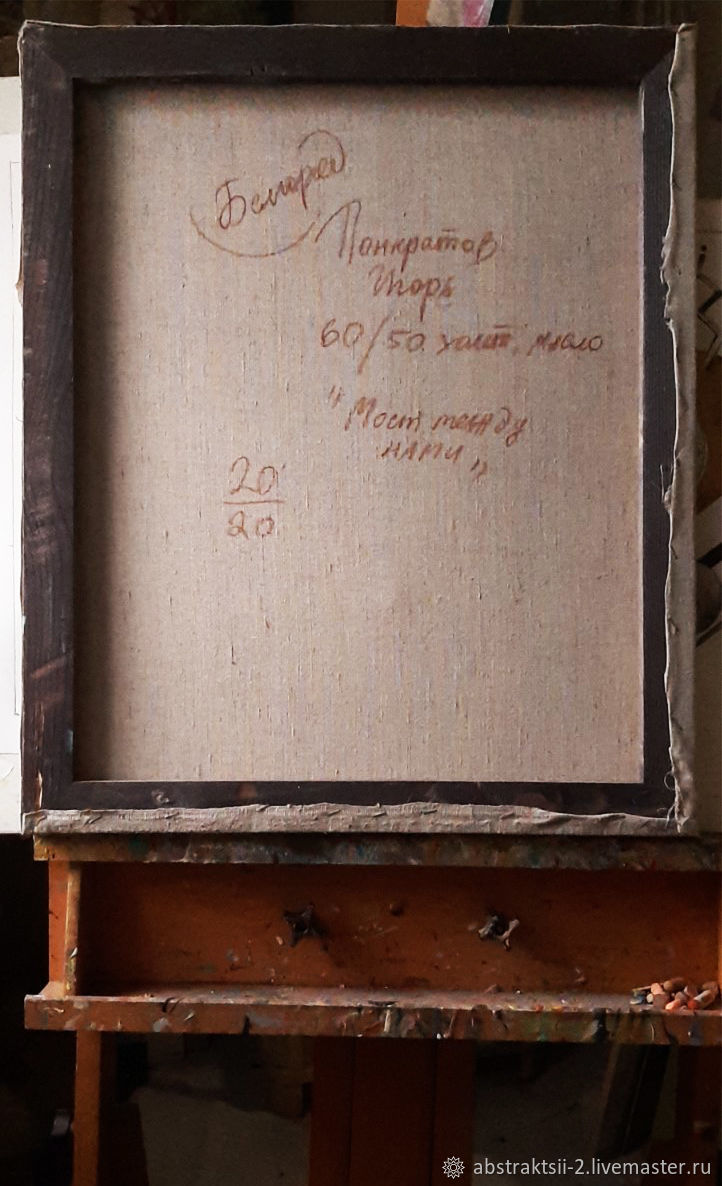 Белгород
Панкратов
Игорь
60/50 холст, масло
"Мост между
нами"
20
20
abstraktsii-2.livemaster.ru